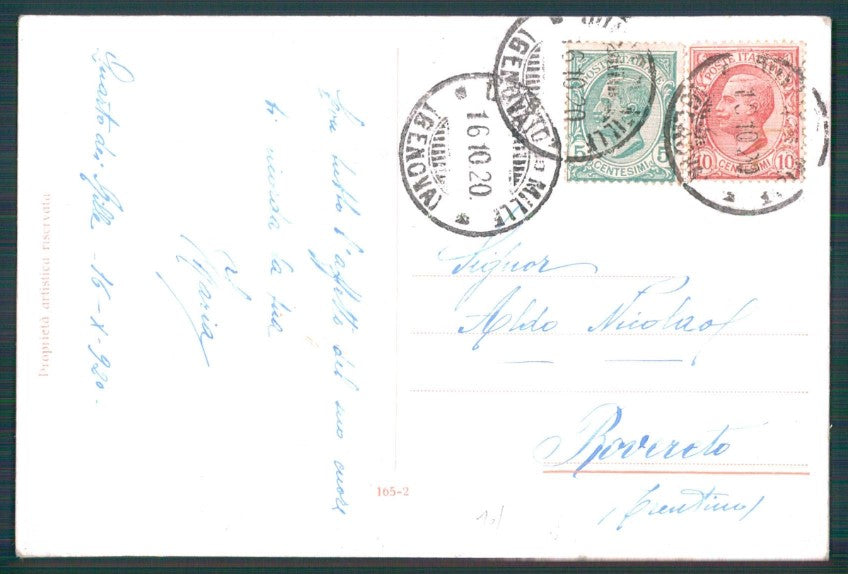 Quarto dei Mille - 16-X-920.
Con tutto l'affetto del suo cuore
ti ricorda la tua
Maria
Proprietà artistica riservata
165-2
(GENOVA)
16 10 20.
MILLE
(GENOVA)
POSTE ITALIANE
5 5
CENTESIMI
POSTE ITALIANE
10 10
CENTESIMI
Signor
Aldo Nicolao
Rovereto
(Trentino)